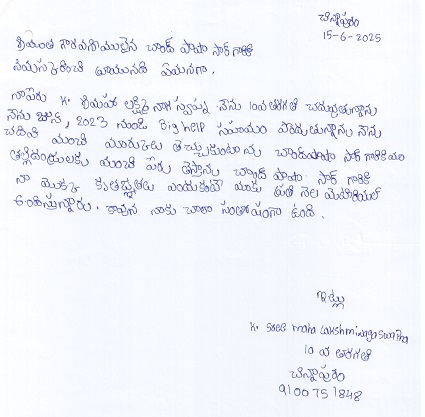 చిన్నాపురం
15-6-2025
శ్రీయుత గౌరవనీయులైన చాంద్ పాషా సార్ గారికి
నమస్కరించి వ్రాయునది ఏమనగా.
నాపేరు K. శ్రీమహా లక్ష్మి నాగ స్వప్న నేను 10వ తరగతి చదువుతున్నాను
నేను జూన్, 2023 నుండి Big help సహాయం పొందుతున్నాను నేను
చదివి మంచి మార్కులు తెచ్చుకుంటాను చాందుపాషా సార్ గారికి మా
తల్లిదండ్రులకు మంచి పేరు తెస్తాను చాంద్ పాషా సార్ గారికి
నా యొక్క కృతజ్ఞతలు ఎందుకంటే మాకు ప్రతి నెల మెటీరియల్
పంపిస్తున్నారు. కావున నాకు చాలా సంతోషంగా ఉంది.
ఇట్లు
K. sree maha Lakshmi naga swapna
10 వ తరగతి
చిన్నాపురం
9100751848